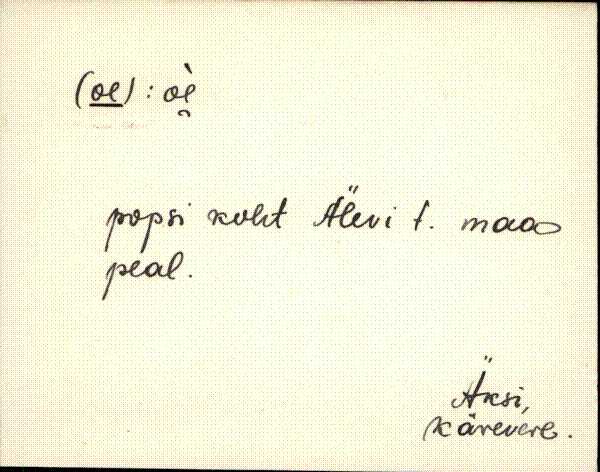 (oe) : oè̯
popsi koht Älevi t. maa
peal.
Äksi,
Kärevere.